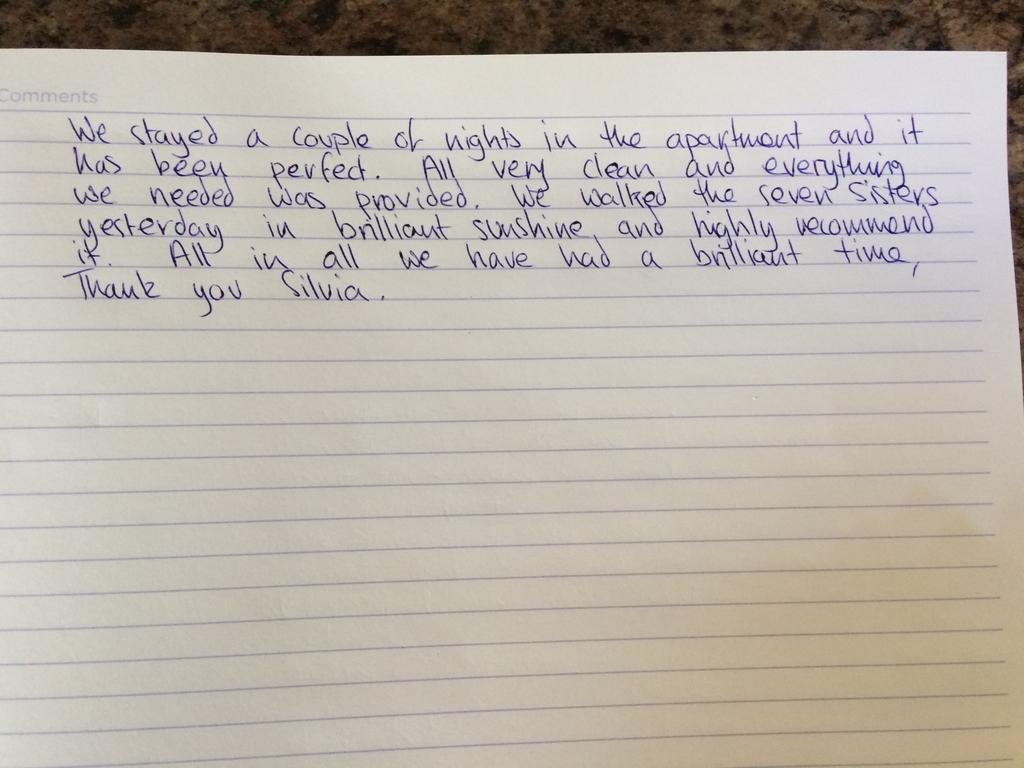 Comments
We stayed a couple of nights in the apartment and it
has been perfect. All very clean and everything
we needed was provided. We walked the seven sisters
yesterday in brilliant sunshine and highly recommend
it. All in all we have had a brilliant time,
Thank you Silvia.